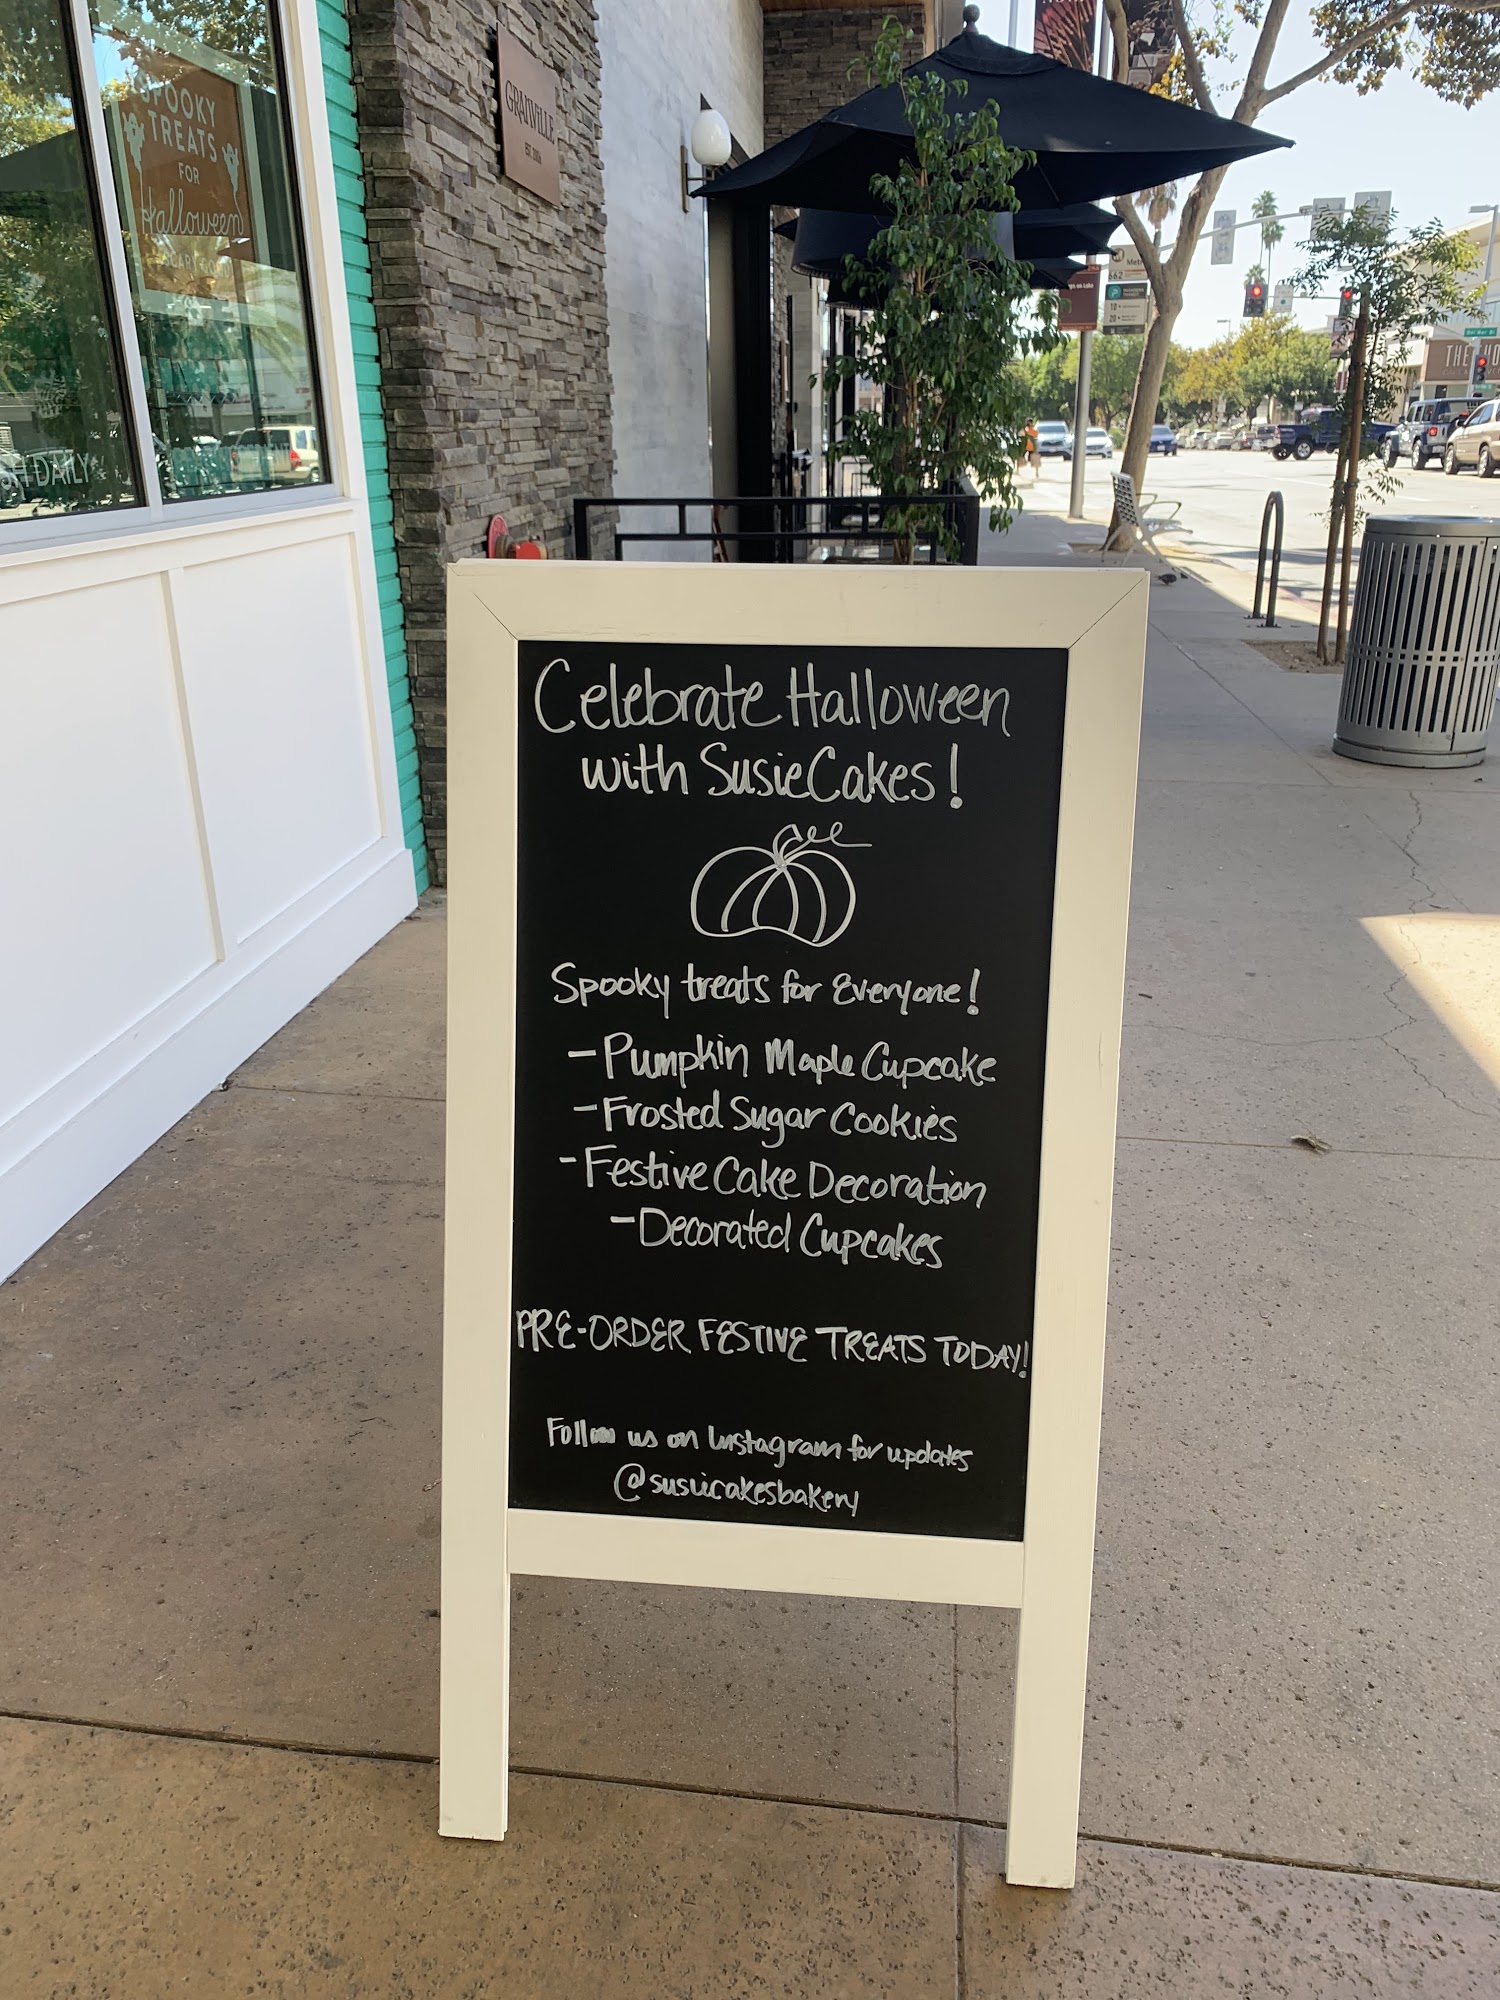 SPOOKY
TREATS
FOR
Halloween
DAILY
GRANVILLE
EST. 2008
Metro
662
Del Mar Bl
THE
Celebrate Halloween
with SusieCakes!
Spooky treats for everyone!
-Pumpkin Maple Cupcake
-Frosted Sugar Cookies
-Festive Cake Decoration
-Decorated Cupcakes
PRE-ORDER FESTIVE TREATS TODAY!
Follow us on Instagram for updates
@susiecakesbakery